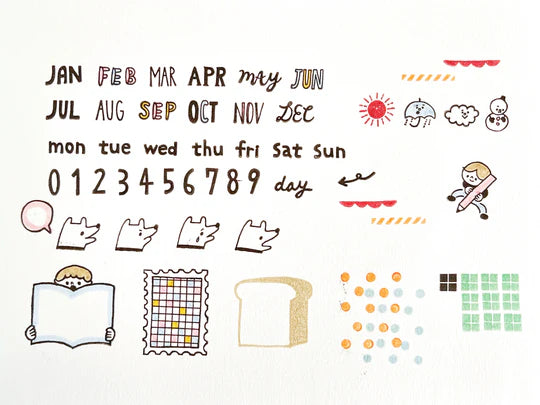 JAN FEB MAR APR mAy JUN
JUL AUG SEP OCT NOV DEC
mon tue wed thu fri Sat Sun
0 1 2 3 4 5 6 7 8 9 day